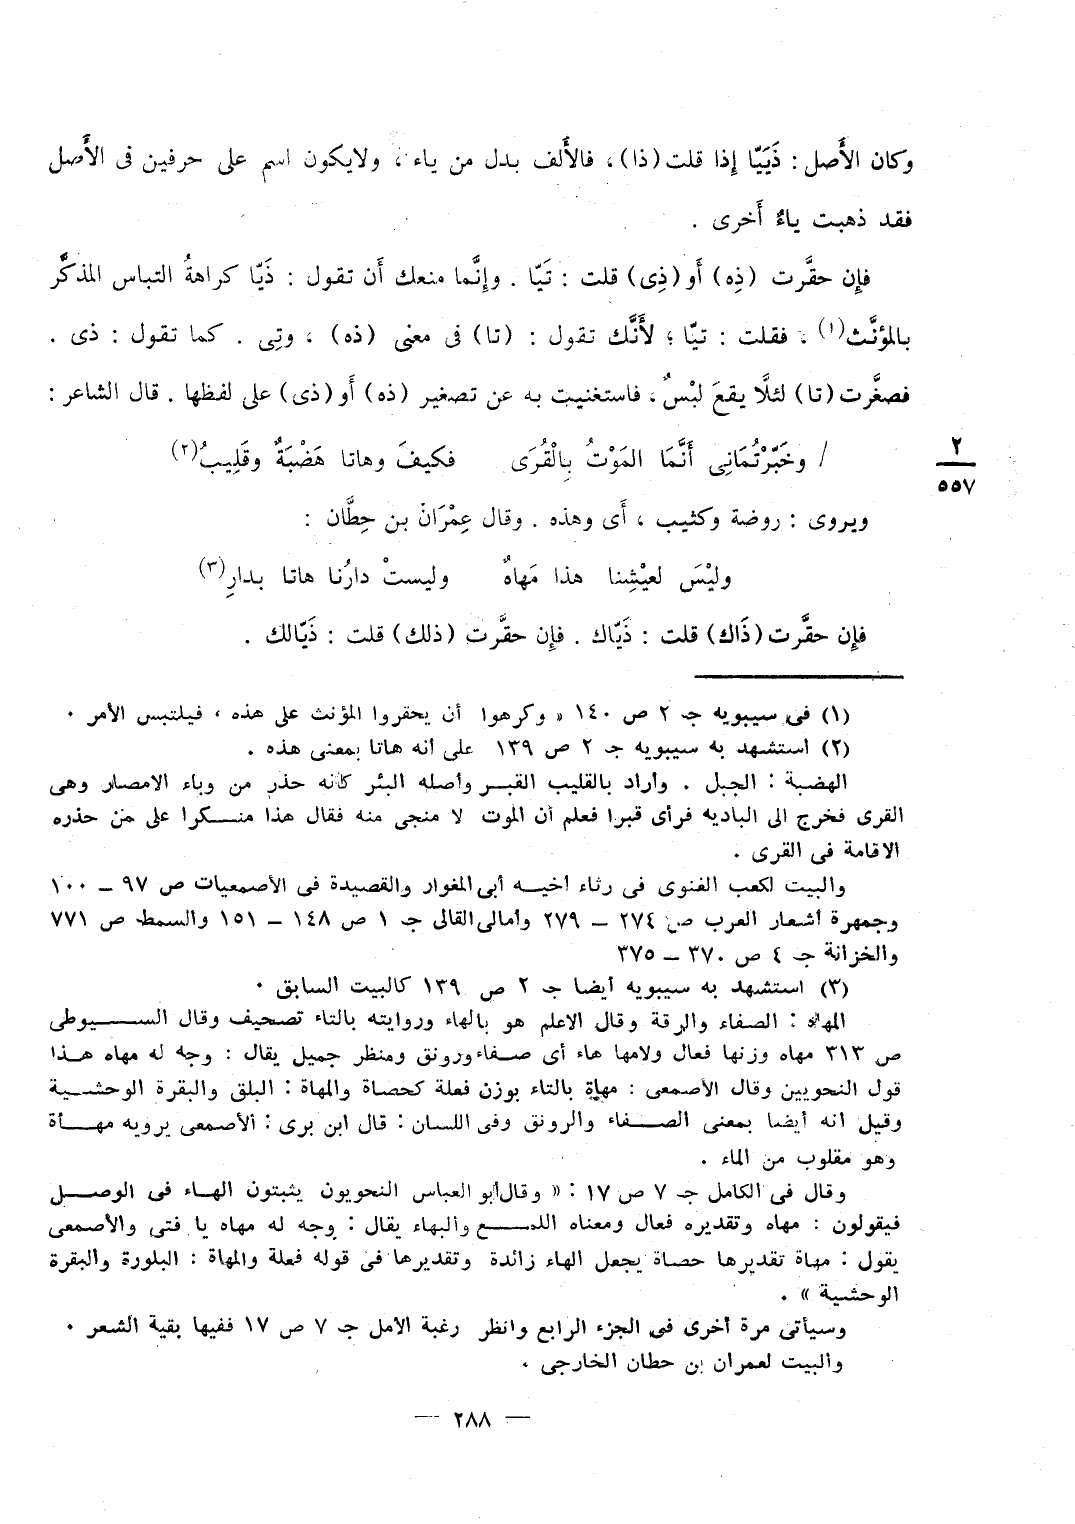 وكان الأَصل : ذَيَيّا إِذا قلت (ذا) ، فالأَلف بدل من ياء ، ولايكون اسم على حرفين فى الأَصل
فقد ذهبت ياءٌ أَخرى .
فإِن حقَّرت (ذِه) أَو (ذِى) قلت : تَيّا . وإِنَّما منعك أَن تقول : ذَيّا كراهةُ التباس المذكَّر
بالمؤنَّث(١) ، فقلت : تيّا ؛ لأَنَّك تقول : (تا) فى معنى (ذه) ، وتِى . كما تقول : ذى .
فصغَّرت (تا) لئلَّا يقعَ لبْسٌ ، فاستغنيت به عن تصغير (ذه) أَو (ذى) على لفظها . قال الشاعر :
/ وخَبَّرْتُمَانِى أَنَّمَا المَوْتُ بِالْقُرَى فكيفَ وهاتا هَضْبَةٌ وقَلِيبُ(٢)
٢
٥٥٧
ويروى : روضة وكثيب ، أَى وهذه . وقال عِمْرَانَ بن حِطَّان :
وليْسَ لعيْشِنا هذا مَهاهٌ وليستْ دارُنا هاتا بدارِ(٣)
فإِن حقَّرت (ذَاك) قلت : ذَيّاك . فإِن حقَّرت (ذلك) قلت : ذَيّالك .
(١) فى سيبويه جـ ٢ ص ١٤٠ « وكرهوا أن يحقروا المؤنث على هذه ، فيلتبس الأمر .
(٢) استشهد به سيبويه جـ ٢ ص ١٣٩ على أنه هاتا بمعنى هذه .
الهضبة : الجبل . وأراد بالقليب القبر وأصله البئر كأنه حذر من وباء الامصار وهى
القرى فخرج الى البادية فرأى قبرا فعلم أن الموت لا منجى منه فقال هذا منكرا على من حذره
الاقامة فى القرى .
والبيت لكعب الغنوى فى رثاء أخيه أبى المغوار والقصيدة فى الأصمعيات ص ٩٧ – ١٠٠
وجمهرة أشعار العرب ص ٢٧٤ – ٢٧٩ وأمالى القالى جـ ١ ص ١٤٨ – ١٥١ والسمط ص ٧٧١
والخزانة جـ ٤ ص ٣٧٠ – ٣٧٥
(٣) استشهد به سيبويه أيضا جـ ٢ ص ١٣٩ كالبيت السابق .
المهاه : الصفاء والرقة وقال الاعلم هو بالهاء وروايته بالتاء تصحيف وقال السيوطى
ص ٣١٣ مهاه وزنها فعال ولامها هاء أى صفاء ورونق ومنظر جميل يقال : وجه له مهاه هذا
قول النحويين وقال الأصمعى : مهاة بالتاء بوزن فعلة كحصاة والمهاة : البلق والبقرة الوحشية
وقيل انه أيضا بمعنى الصفاء والرونق وفى اللسان : قال ابن برى : الأصمعى يرويه مهأة
وهو مقلوب من الماء .
وقال فى الكامل جـ ٧ ص ١٧ : « وقال أبو العباس النحويون يثبتون الهاء فى الوصل
فيقولون : مهاه وتقديره فعال ومعناه اللمع والبهاء يقال : وجه له مهاه يا فتى والأصمعى
يقول : مهاة تقديرها حصاة يجعل الهاء زائدة وتقديرها فى قوله فعلة والمهاة : البلورة والبقرة
الوحشية » .
وسيأتى مرة أخرى فى الجزء الرابع وانظر رغبة الامل جـ ٧ ص ١٧ ففيها بقية الشعر .
والبيت لعمران بن حطان الخارجى .
— ٢٨٨ —